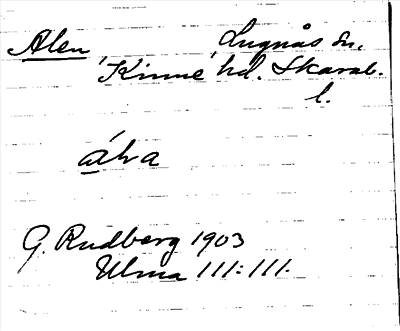 Alen Lugnås sn.
Kinne hd. Skarab.
l.
álva
G. Rudberg 1903
Ulma 111:111.